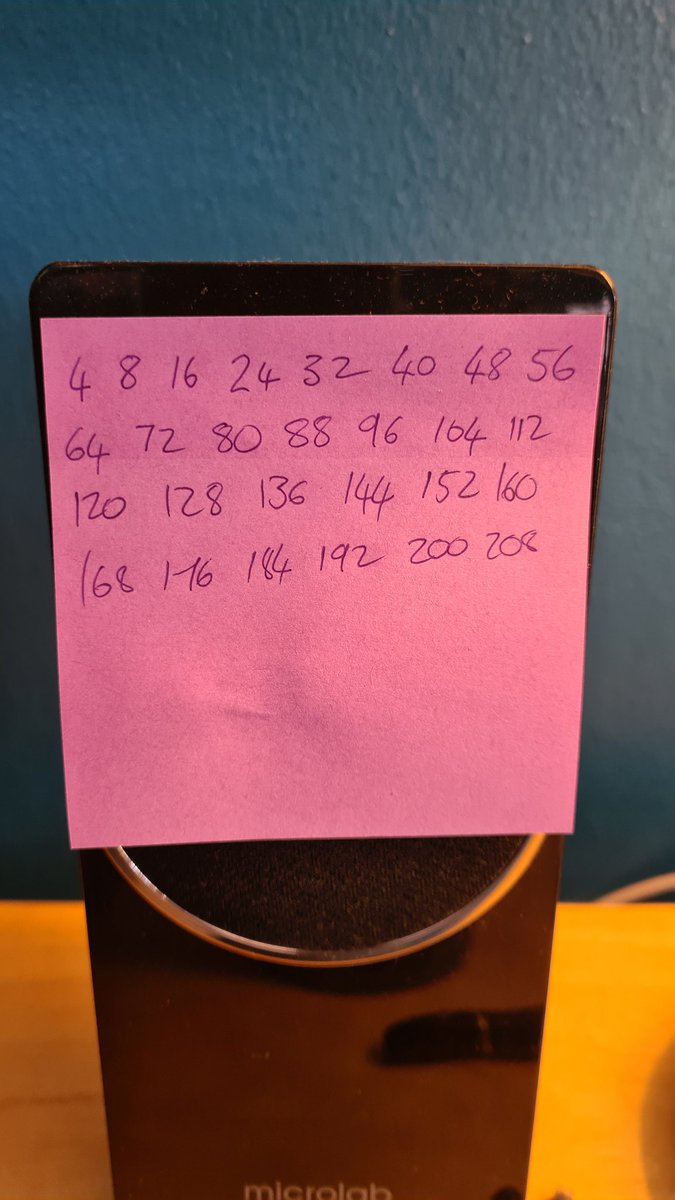 4 8 16 24 32 40 48 56
64 72 80 88 96 104 112
120 128 136 144 152 160
168 176 184 192 200 208
microlab